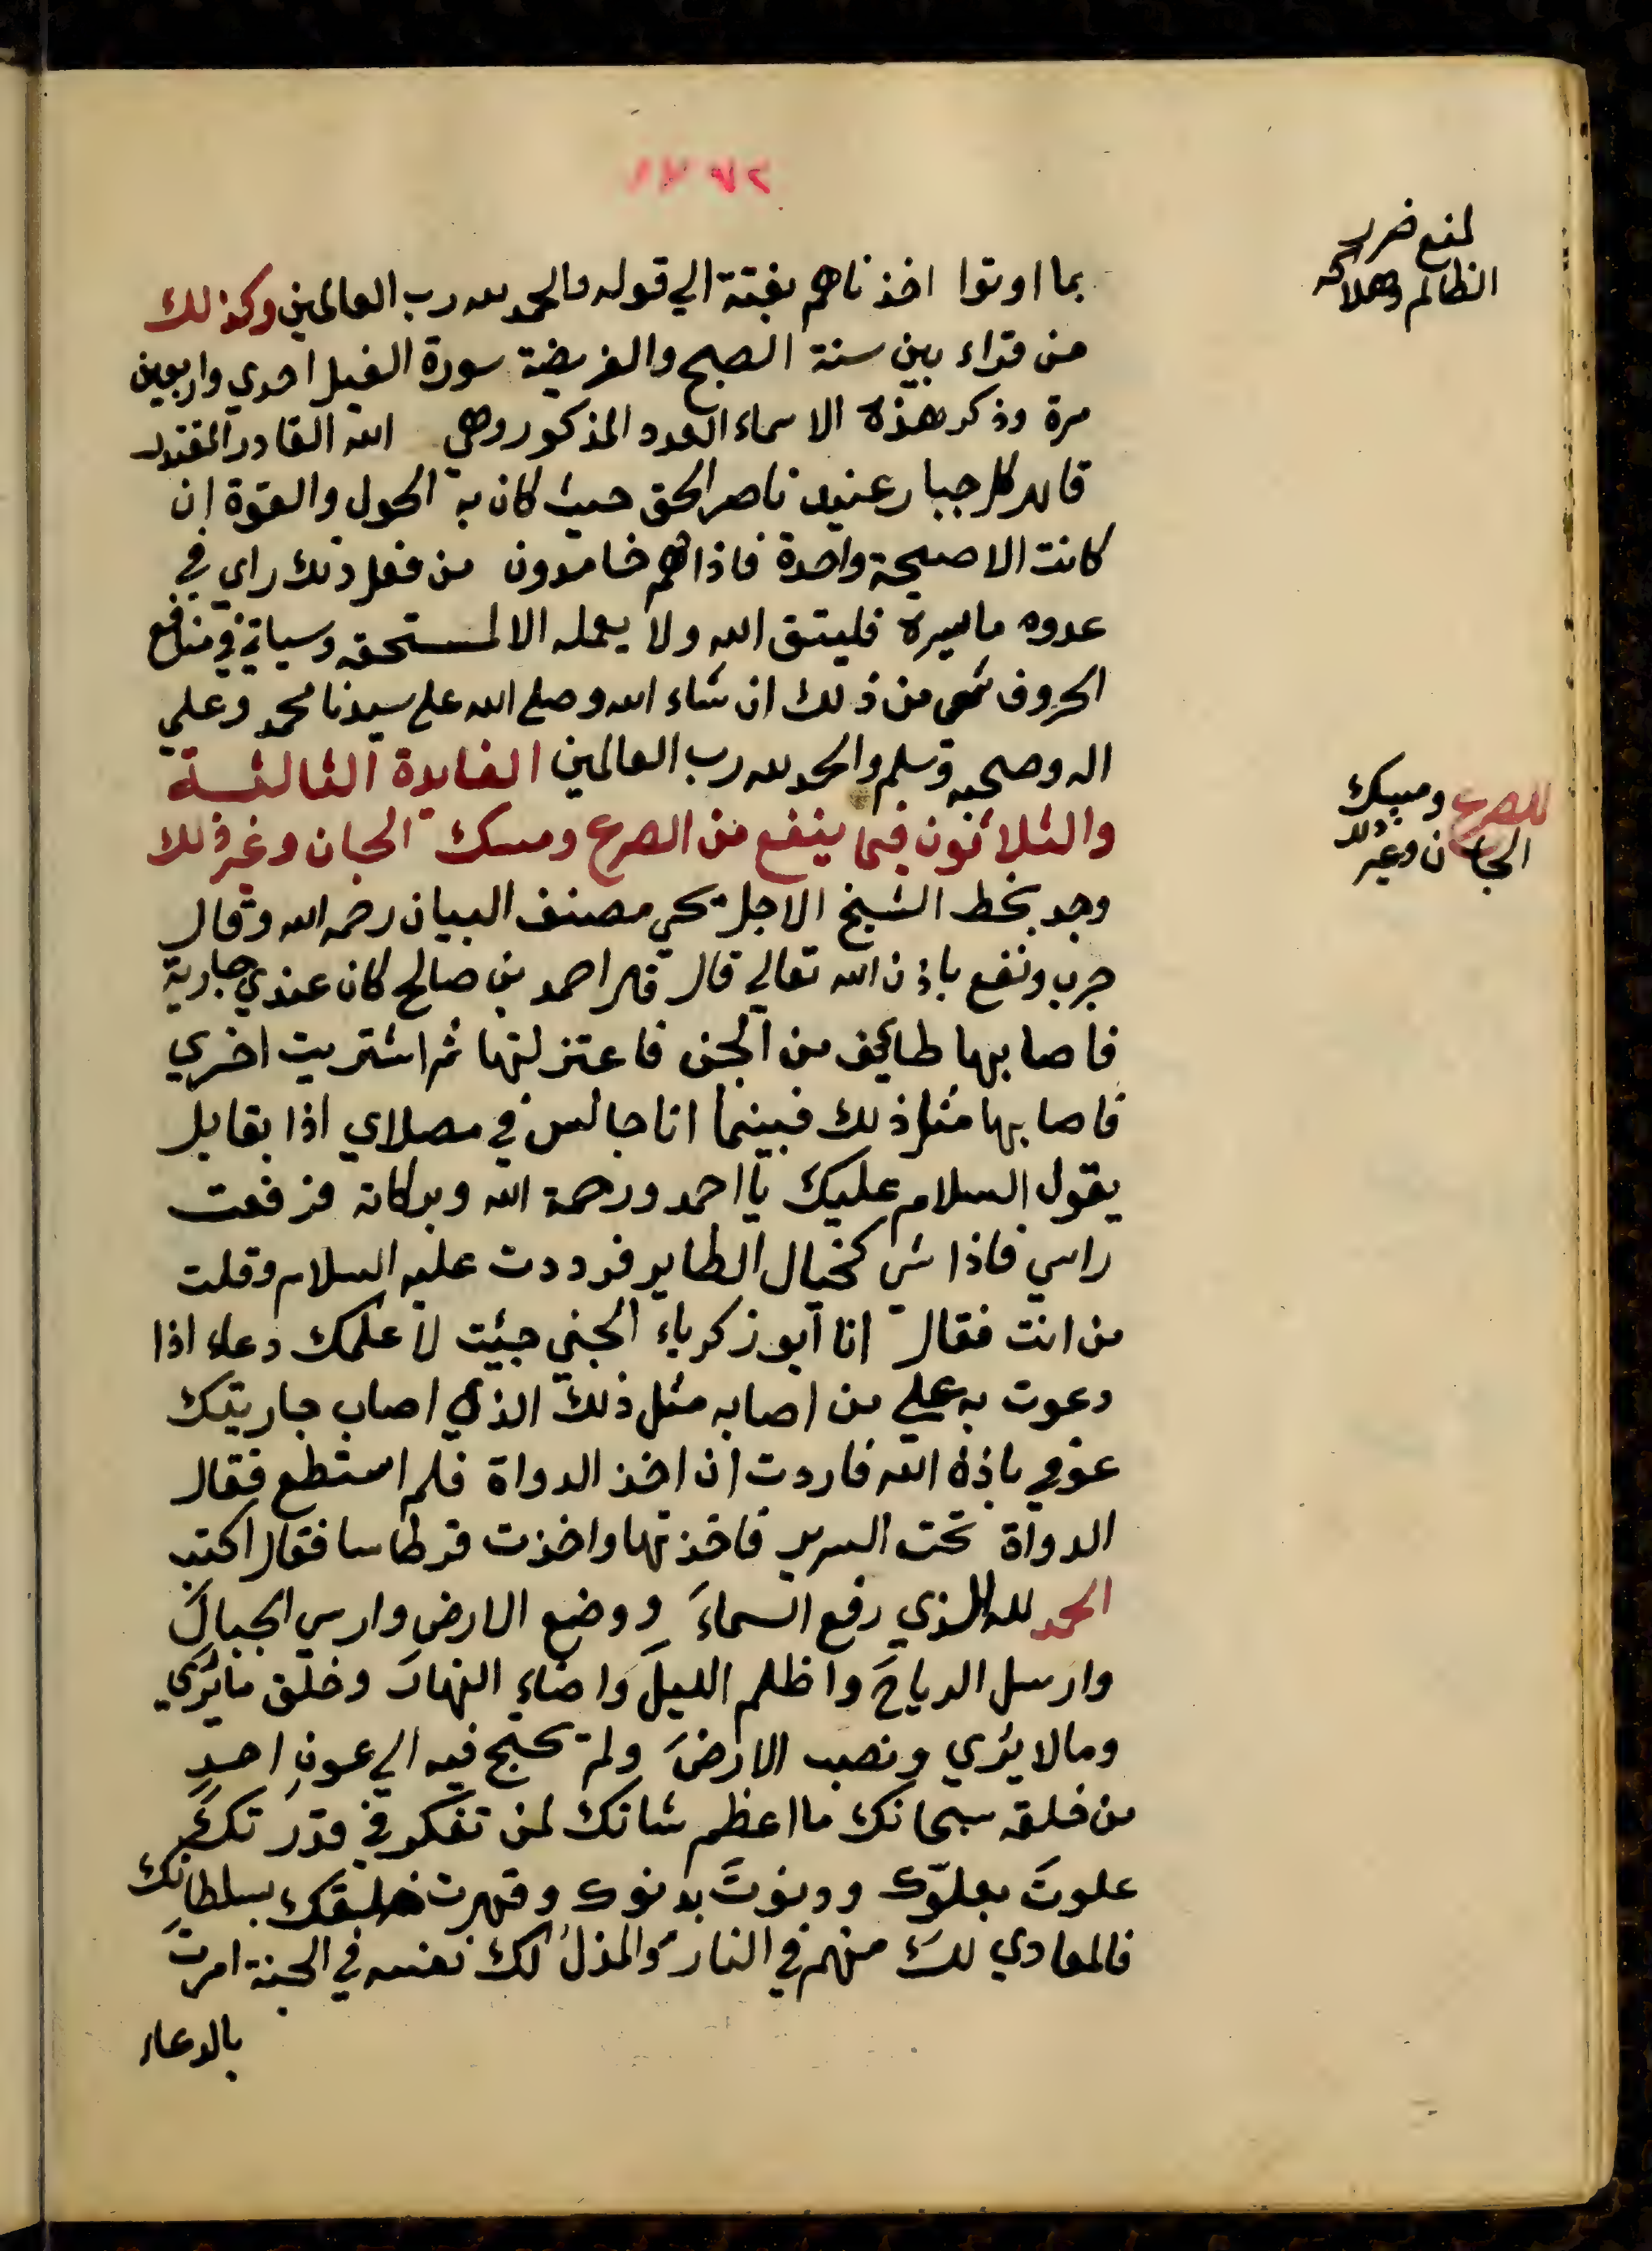 لمنع ضرر
الظالم وهلاكه
بما اوتوا اخذناهم بغتة الي قوله والحمد لله رب العالمين وكذلك
من قراء بين سنة الصبح والفريضة سورة الفيل احدي واربعين
مرة وذكر هذه الاسماء العدد المذكور وهي الله القادر المقتدر
قاهر كل جبار عنيد ناصر الحق حيث كان به الحول والقوة ان
كانت الا صيحة واحدة فاذا هم خامدون من فعل ذلك راي في
عدوه ما يسره فليتق الله ولا يعمله الا لمستحقه وسياتي في منافع
الحروف شي من ذلك ان شاء الله وصلي الله علي سيدنا محمد وعلي
اله وصحبه وسلم والحمد لله رب العالمين الفايدة الثالثة
والثلاثون فيما ينفع من الصرع ومسك الجان وغير ذلك
للصرع ومسك
الجان وغير ذلك
وجد بخط الشيخ الاجل يحي مصنف البيان رحمه الله وقال
جرب ونفع باذن الله تعالي قال قال احمد بن صالح كان عندي جارية
فاصابها طايف من الجن فاعتزلتها ثم اشتريت اخري
فاصابها مثل ذلك فبينما انا جالس في مصلاي اذا بقايل
يقول السلام عليك يا احمد ورحمة الله وبركاته فرفعت
راسي فاذا شي كخيال الطاير فرددت عليه السلام وقلت
من انت فقال انا ابو زكرياء الجني جئت لاعلمك دعاء اذا
دعوت به علي من اصابه مثل ذلك الذي اصاب جاريتك
عوفي باذن الله فاردت ان اخذ الدواة فلم استطع فقال
الدواة تحت السرير فاخذتها واخذت قرطاسا فقال اكتب
الحمد لله الذي رفع السماءَ ووضع الارض وارسي الجبالَ
وارسل الرياحَ واظلم الليلَ واضاء النهارَ وخلق ما يُري
وما لا يُري ونصب الارضَ ولم يحتج فيه الي عونِ احدٍ
من خلقه سبحانك ما اعظم شانك لمن تفكر في قدرتك
علوتَ بعلوّك ودنوتَ بدنوك وقهرت خلقك بسلطانك
فالمعادي لكَ منهم في النار والمذلُ لك نفسه في الجنة امرتَ
بالدعاء